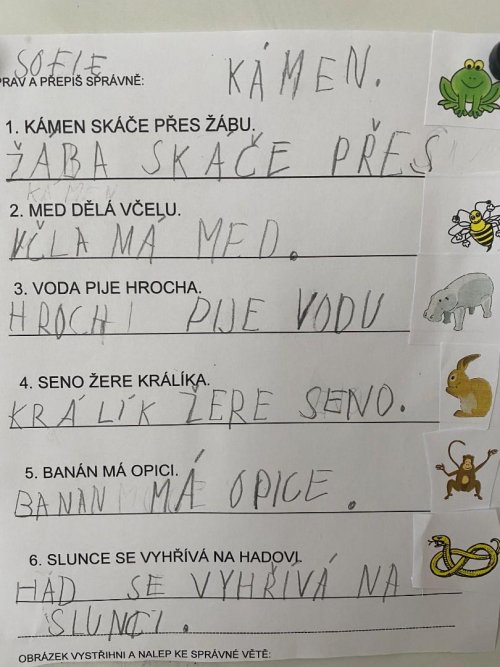 SOFIE
PRAV A PŘEPIŠ SPRÁVNĚ:
KÁMEN.
1. KÁMEN SKÁČE PŘES ŽÁBU.
ŽÁBA SKÁČE PŘES
KÁMEN
2. MED DĚLÁ VČELU.
VČLA MÁ MED.
3. VODA PIJE HROCHA.
HROCH PIJE VODU
4. SENO ŽERE KRÁLÍKA.
KRÁLÍK ŽERE SENO.
5. BANÁN MÁ OPICI.
BANAN MÁ OPICE.
6. SLUNCE SE VYHŘÍVÁ NA HADOVI.
HAD SE VYHŘÍVÁ NA
SLUNCI.
OBRÁZEK VYSTŘIHNI A NALEP KE SPRÁVNÉ VĚTĚ: